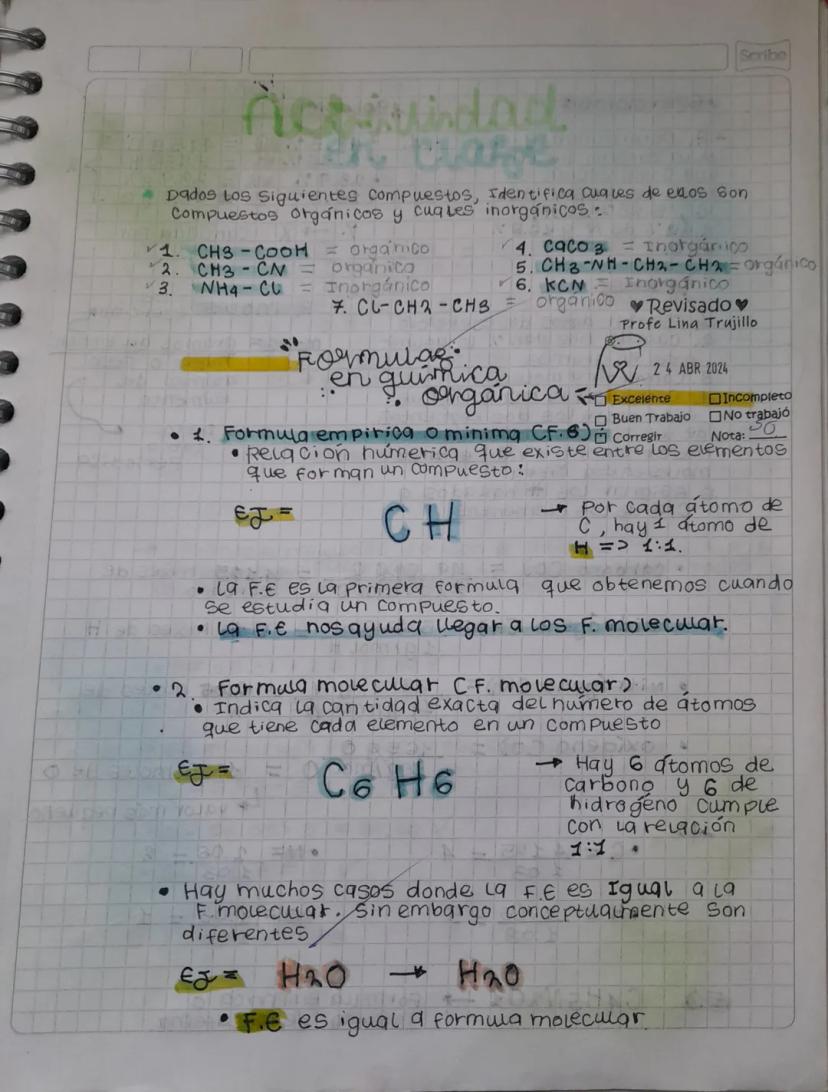 Scribe
Actividad
en clase
Dados los siguientes compuestos, Identifica cuales de ellos son
compuestos orgánicos y cuales inorgánicos:
1. CH3 - COOH = orgánico
2. CH3 - CN = orgánico
3. NH4 - Cl = Inorgánico
4. CaCO3 = Inorgánico
5. CH3-NH-CH2-CH2 = orgánico
6. KCN = Inorgánico
7. Cl-CH2-CH3 = orgánico
♥ Revisado ♥
Profe Lina Trujillo
24 ABR 2024
Excelente
Incompleto
Buen Trabajo
No trabajó
Corregir
Nota: 50
Formulas
en química
orgánica
• 1. Formula empirica o minima (F.E):
• Relacion númerica que existe entre los elementos
que forman un compuesto:
EJ = CH
→ Por cada átomo de
C, hay 1 átomo de
H => 1:1.
• La F.E es la primera formula que obtenemos cuando
se estudia un compuesto.
• La F.E nos ayuda llegar a los F. molecular.
• 2. Formula molecular (F. molecular)
• Indica la cantidad exacta del numero de átomos
que tiene cada elemento en un compuesto
EJ = C6 H6
→ Hay 6 átomos de
carbono y 6 de
hidrogéno cumple
con la relación
1:1 •
• Hay muchos casos donde la F.E es Igual a la
F. molecular. Sin embargo conceptualmente son
diferentes
EJ = H2O → H2O
• F.E es igual a formula molecular.